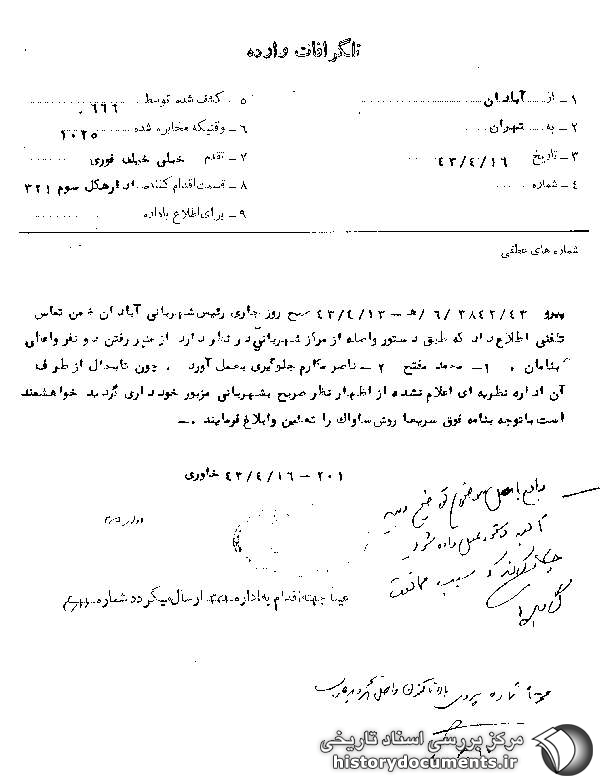 تلگرافات وارده
۱ – از آبادان
۲ – به تهران
۳ – تاریخ ۴۳/۴/۱۶
۴ – شماره
۵ – کشف شده توسط ۶۶۶
۶ – وقتیکه مخابره شده ۲۰۲۵
۷ – تقدم خیلی خیلی فوری
۸ – قسمت اقدام کننده اداره کل سوم ۳۲۱
۹ – برای اطلاع باداده
شماره های عطفی
پیرو ۳۸۴۲/۴۳ /۶ /ه – ۴۳/۴/۱۳ صبح روز جاری رئیس شهربانی آبادان ضمن تماس
تلفنی اطلاع داد که طبق دستور واصله از مرکز شهربانی در نظر دارد از منبر رفتن دو نفر واعظ
بنامان ۱– محمد مفتح ۲– ناصر مکارم جلوگیری بعمل آورد ، چون تابحال از طرف
آن اداره نظریه ای اعلام نشده از اظهار نظر صریح بشهربانی مزبور خودداری گردید خواهشمند
است باتوجه بنامه فوق سریعا روش ساواک را تعیین وابلاغ فرمایند .–
۲۰۱ – ۴۳/۴/۱۶ خاوری
توضیح دهید
دستور عمل داده شود
ممانعت
عینا جهت اقدام به اداره ارسال میگردد شماره
مرکز بررسی اسناد تاریخی
historydocuments.ir